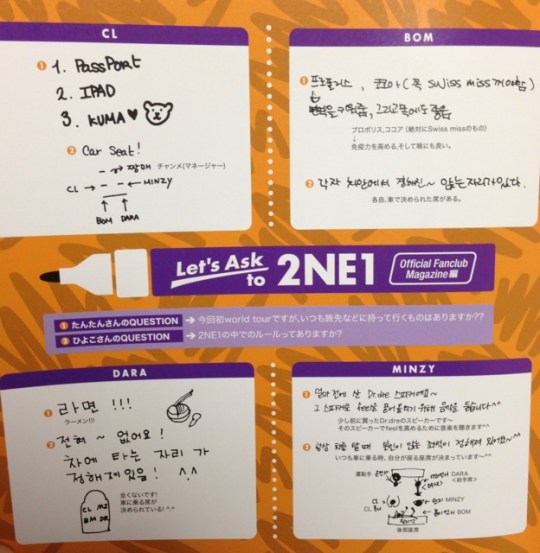 CL
❶ 1. PassPort
2. IPAD
3. KUMA♥
❷ Car seat!
→ 짱매 チャンメ(マネージャー)
CL → ← MINZY
↑ ↑
BOM DARA
BOM
❶ 프로폴리스, 코코아 (꼭 swiss miss꺼여야함)
↓
면역을 키워줌, 그리고 목에도 좋음
プロポリス、ココア (絶対にSwiss missのもの)
↓
免疫力を高める、そして喉にも良い。
❷ 각자 차안에서 정해진~ 앉는 자리가 있다.
各自、車で決められた席がある。
Let's Ask to 2NE1
Official Fanclub Magazine
❶ たんたんさんのQUESTION → 今回初world tourですが、いつも旅先などに持って行くものはありますか??
❷ ひよこさんのQUESTION → 2NE1の中でのルールってありますか?
DARA
❶ 라면 !!!
ラーメン!!!
❷ 전혀 ~ 없어요!
차에 타는 자리 가
정해져있음! ^.^
全くないです!
車に乗る席が
決められている! ^.^
CL MZ
BM DR
MINZY
❶ 얼마전에 산 Dr.dre 스피커에요~
그 스피커로 feel을 끌어올리기 위해 음악을 듣습니다^^
少し前に買ったDr.dreのスピーカーです~
そのスピーカーでfeelを高めるために音楽を聴きます^^
❷ 항상 차를 탈 때 본인이 앉는 좌석이 정해져 있어요~^^
いつも車に乗る時、自分が座る座席が決まっています~^^
運転手
DARA
<助手席>
CL
CL
MINZY
BOM
後部座席